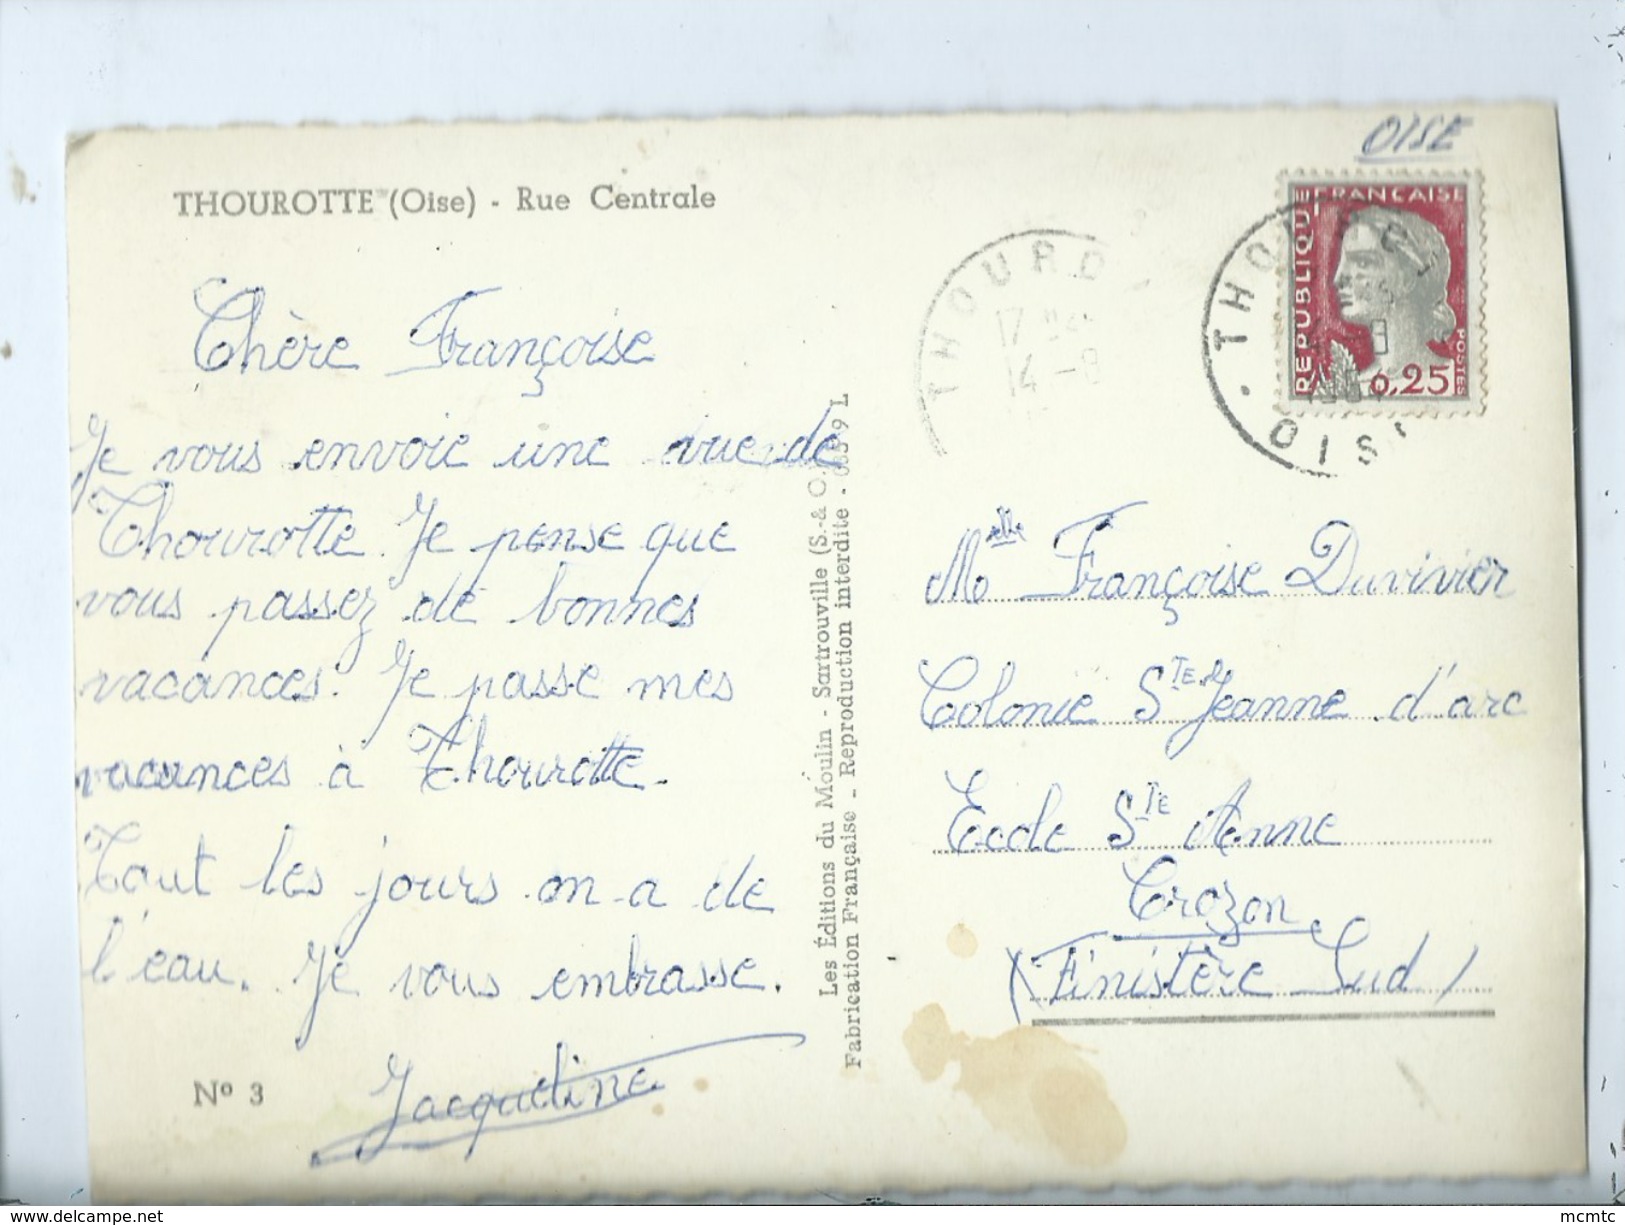 OISE
THOUROTTE (Oise) - Rue Centrale
Chère Françoise
Je vous envoie une vue de
Thourotte. Je pense que
vous passez de bonnes
vacances. Je passe mes
vacances à Thourotte.
Tout les jours on a de
l'eau. Je vous embrasse.
Jacqueline
N° 3
Les Éditions du Moulin - Sartrouville (S.-& O.)
Fabrication Française - Reproduction interdite -
THOUROT
17
14 - 8
RÉPUBLIQUE FRANÇAISE
POSTES
0,25
THOUROT
OISE
Melle Françoise Duvivier
Colonie Ste Jeanne d'arc
Ecole Ste Anne
Crozon
(Finistère Sud)
delcampe.net
mcmtc